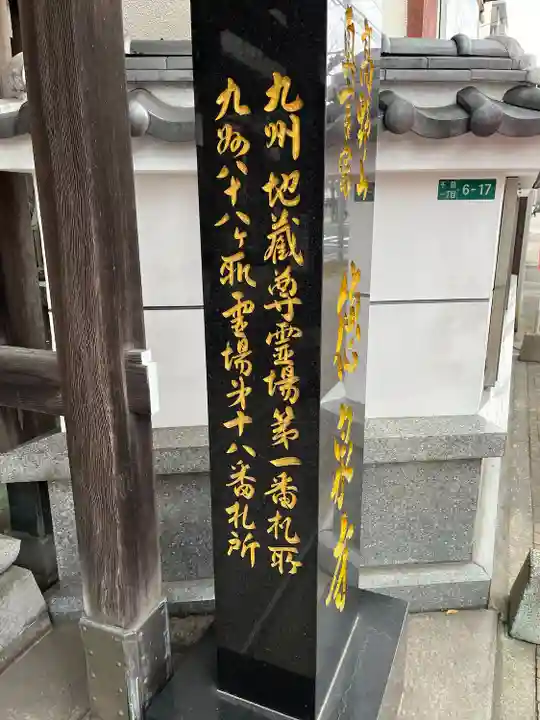 九州地蔵尊霊場第一番札所
九州八十八ヶ所霊場第十八番札所
高野山
真言宗
6-17